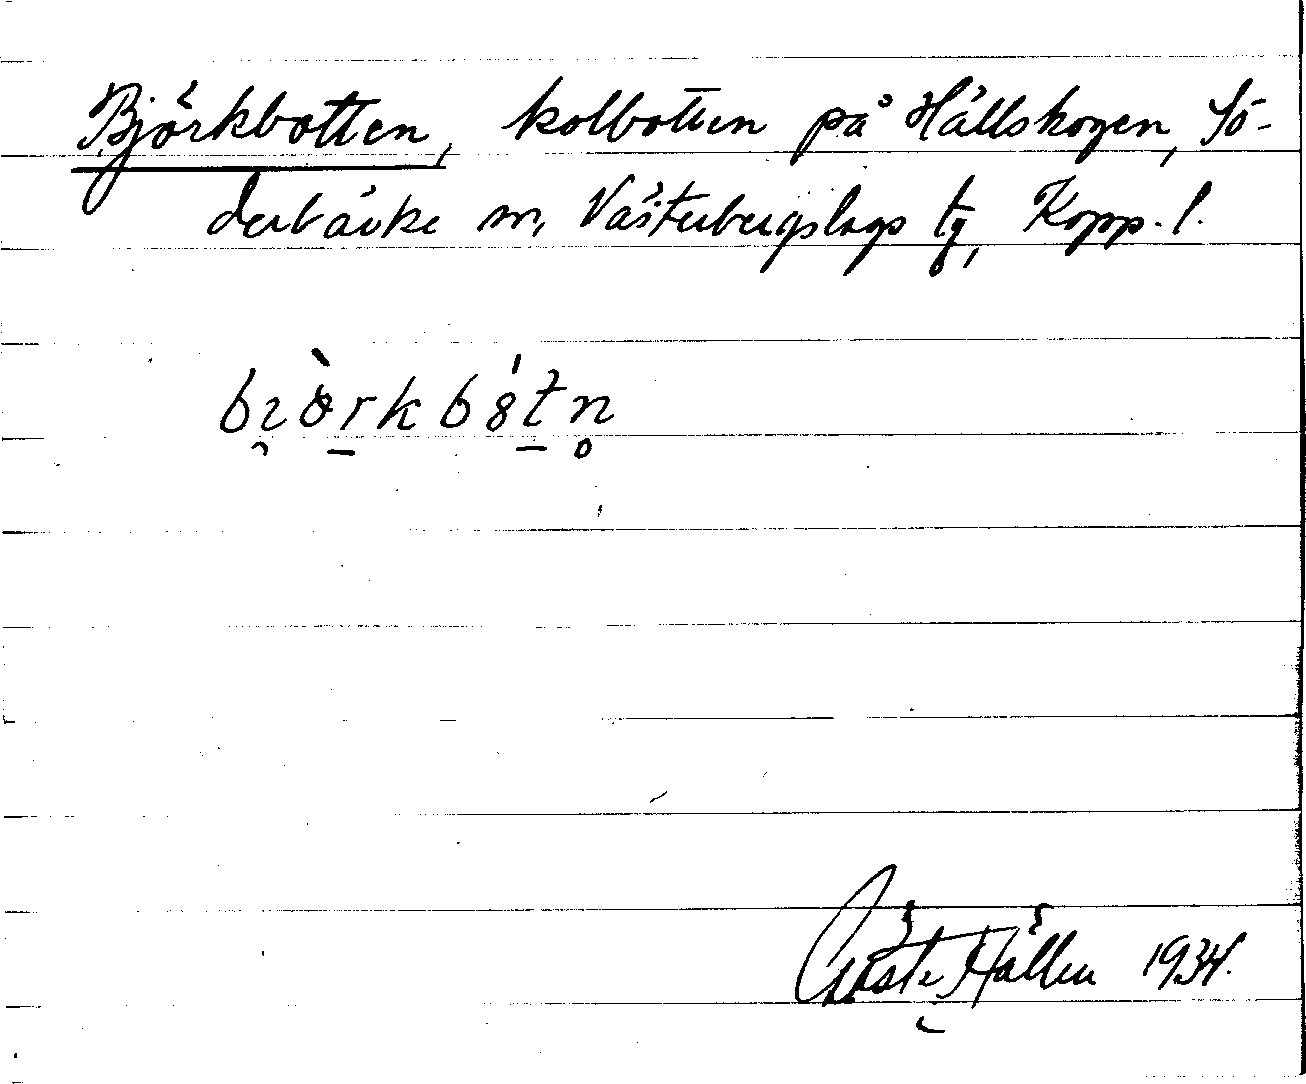 Björkbotten, kolbotten på Hållskogen, Sö-
derbärke sn, Västerbergslags tg, Kopp. l.
Gösta Hällen 1934.